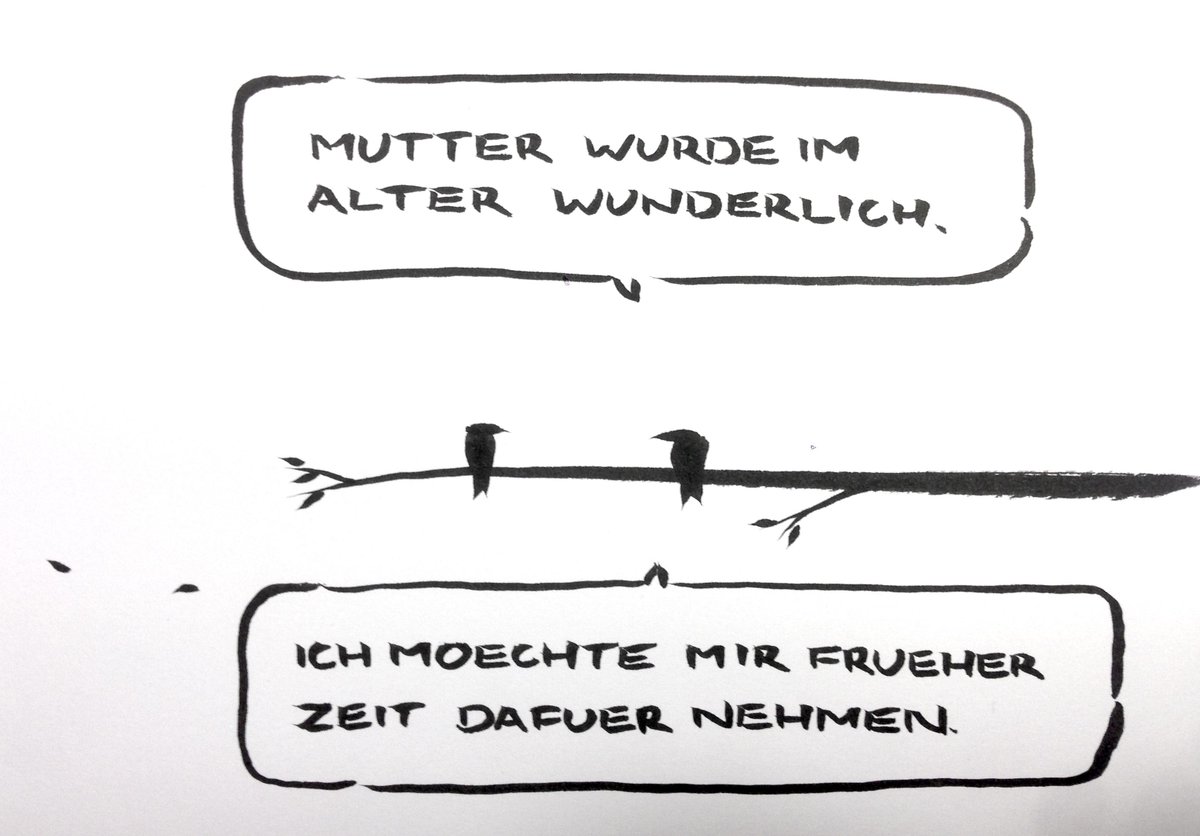 MUTTER WURDE IM
ALTER WUNDERLICH.
ICH MOECHTE MIR FRUEHER
ZEIT DAFUER NEHMEN.